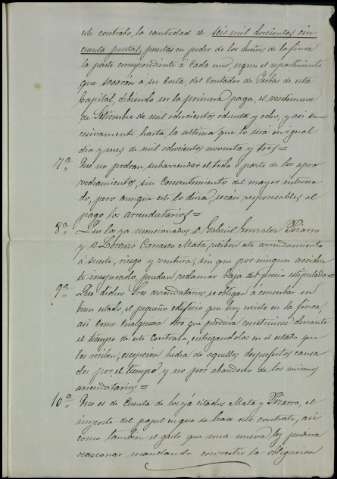 este contrato, la cantidad de seis mil doscientas cin
cuenta pesetas, puestas en poder de los dueños de la finca
la parte correspondiente á cada uno, segun el repartimiento
que sacarán á su costa del Contador de Partes de esta
Capital, debiendo ser la primera paga, el
de Setiembre de mil ochocientos ochenta y ocho, y asi su
cesivamente hasta la ultima que lo será en igual
dia y mes de mil ochocientos noventa y tres=
7ª Que no podrán subarrendar el todo ó parte de los apro
vechamientos, sin consentimiento del mayor interesa
do, pero aunque este lo diera serán responsables al
pago los arrendatarios=
8ª Que los ya mencionados D. Gabriel Gonzalez Pizarro
y D. Lorenzo Carrasco Mata, reciben este arrendamiento
á suerte, riesgo y ventura, sin que por ningun acciden
te inesperado, puedan reclamar baja del precio estipulado=
9ª Que dichos Sres arrendatarios se obligan á conservar en
buen estado, el pequeño edificio que hoy existe en la finca,
asi como cualquier otro que pudiera construirse durante
el tiempo de este contrato, entregandolos en el estado que
los reciban, escepcion hecha de aquellos desperfectos causa
dos por el tiempo y no por abandono de los mismos
arrendatarios=
10ª Que es de cuenta de los ya citados Mata y Pizarro, el
importe del papel en que se haga este contrato, asi
como tambien el gasto que una nueva ley pudiera
ocasionar mandando convertir la obligacion